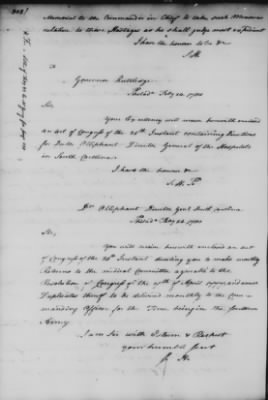 Memorial to the Commander in Chief to take such Measures
relative to those Hostages as he shall judge most expedient
I have the honour to be &c
S. H.
Governor Rutledge
Philada Feby 1780
Sir,
Your Excellency will receive herewith enclosed
an act of Congress of the 26th Instant containing Directions
for Doctr Olliphant Director General of the Hospitals
in South Carolina.
I have the honour &c
S. H. Pt
Dr Olliphant Director Genl South Carolina
Philada Feby 1780
Sir,
You will receive herewith enclosed an act
of Congress of the 26th Instant directing you to make monthly
Returns to the medical Committee agreeable to the
Resolution of Congress of the of April 1777, and
Duplicates thereof to be delivered monthly to the Com-
manding Officer for the Time being in the southern
Army
I am Sir with Esteem & Respect
your humble Servt
S. H.